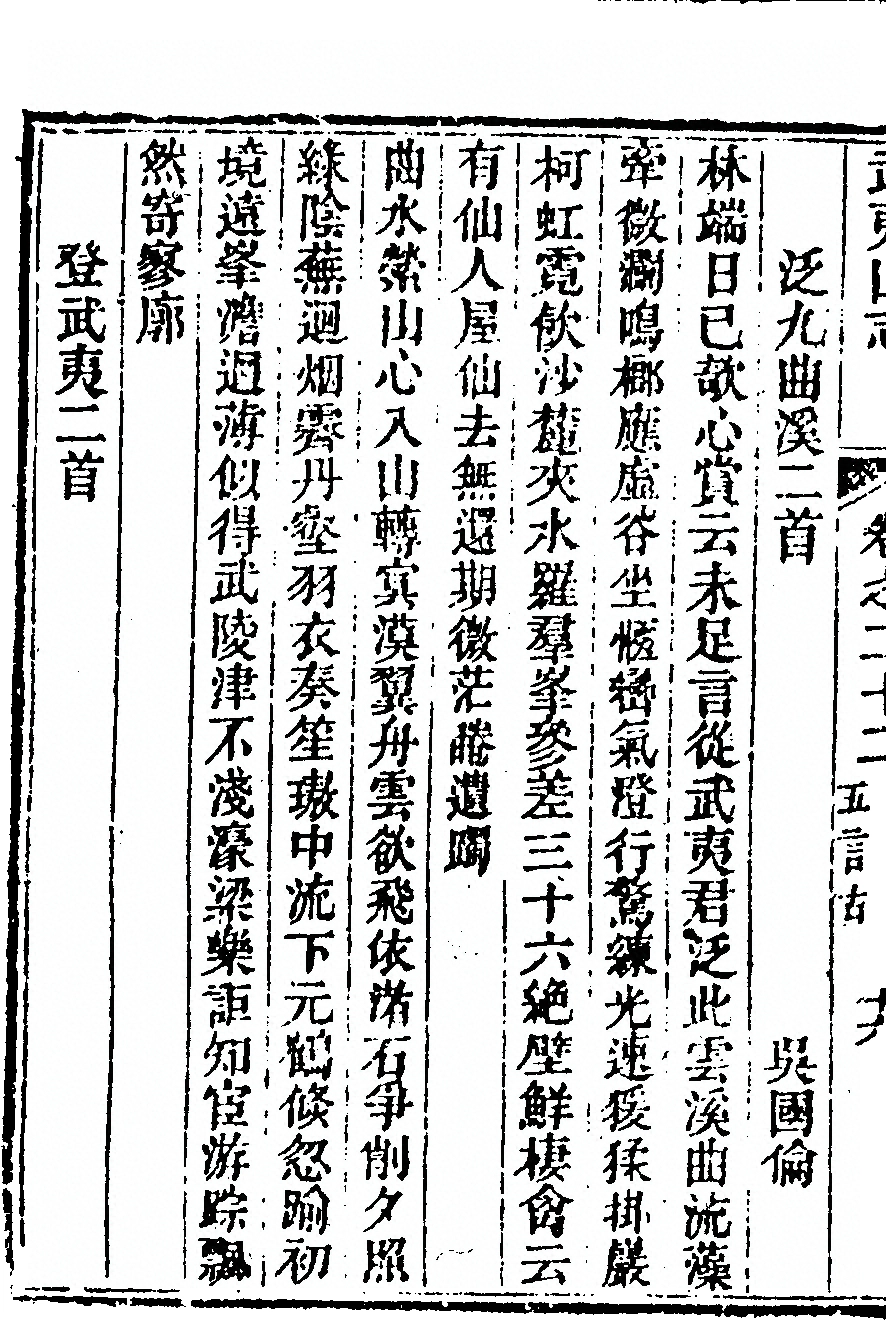 武夷山志 卷之二十二 五言古 十六
泛九曲溪二首 吳國倫
林端日已欹心賞云未足言從武夷君泛此雲溪曲流藻
牽微瀾鳴榔應虛谷坐愜巒氣澄行驚練光速猨猱掛巖
柯虹霓飲沙麓夾水羅羣峯參差三十六絶壁鮮棲禽云
有仙人屋仙去無還期微茫睠遺躅
曲水縈山心入山轉寞漠翼舟雲欲飛依渚石爭削夕照
綠陰蕪迴烟霽丹壑羽衣奏笙璈中流下元鶴倏忽踰初
境遠峯澹迴薄似得武陵津不淺濠梁樂詎知宦游踪飄
然寄寥廓
登武夷二首